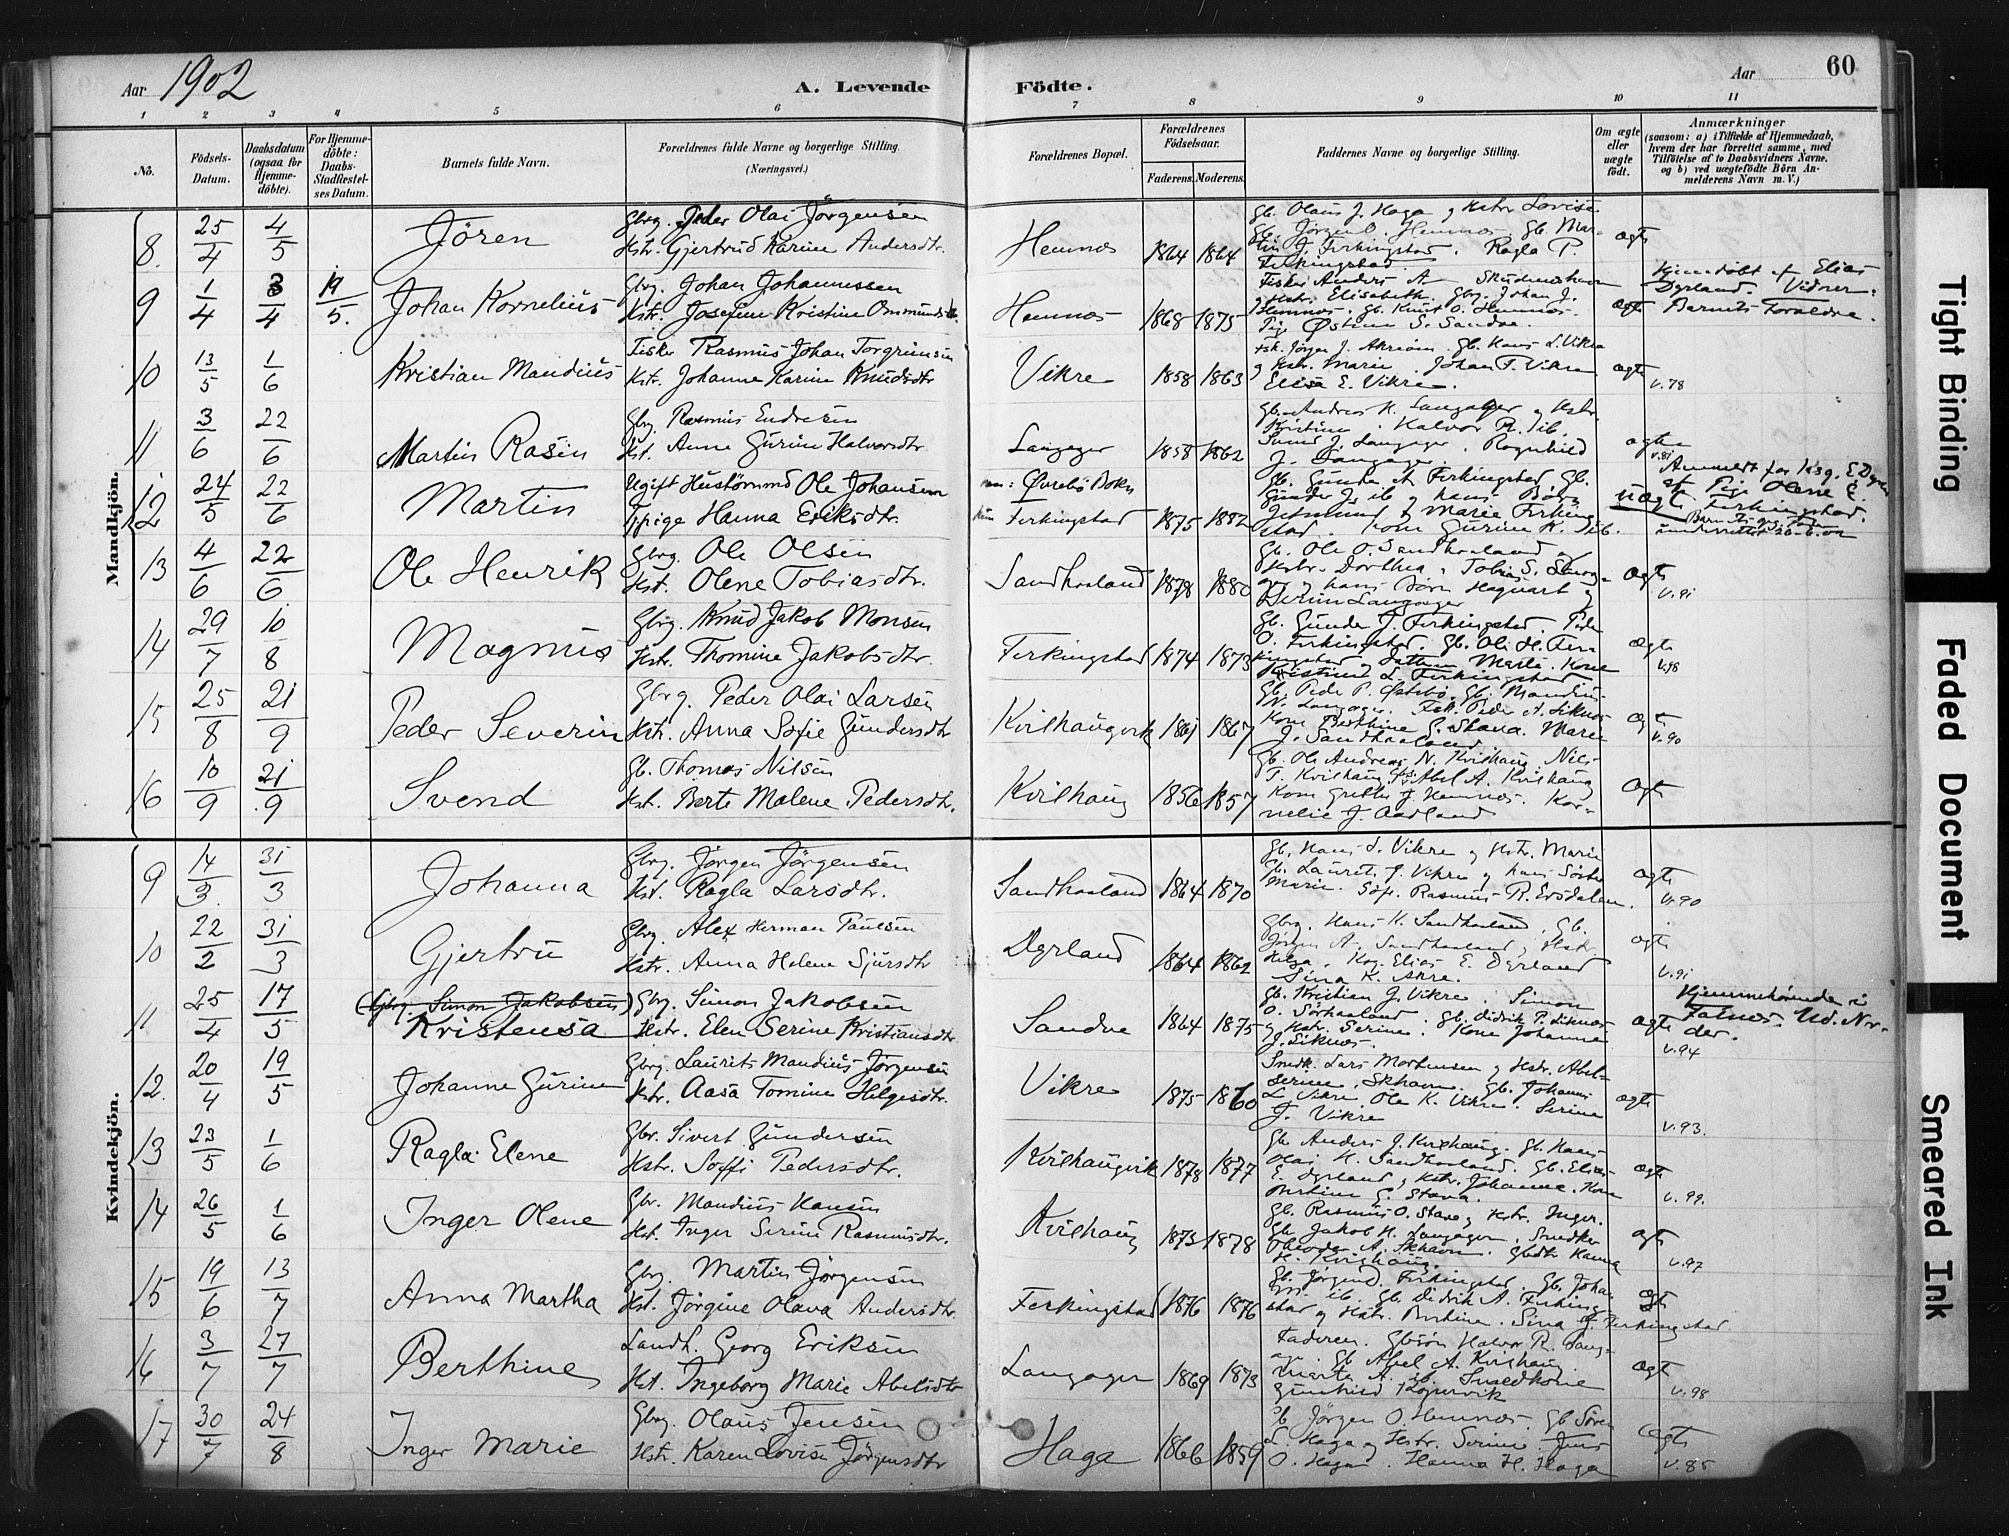 Aar 1902
A. Levende
Födte.
Aar
60
1 2 3 4 5 6 7 8 9 10 11
No.
Födsels-Datum.
Daabsdatum (ogsaa for Hjemme-döbte).
For Hjemme-döbte: Daabs-Stadfæstel-ses Datum.
Barnets fulde Navn.
Forældrenes fulde Navne og borgerlige Stilling.
(Næringsvei.)
Forældrenes Bopæl.
Forældrenes Födselsaar.
Faderens. Moderens.
Faddernes Navne og borgerlige Stilling.
Om ægte eller uægte födt.
Anmærkninger
(saasom: a) i Tilfælde af Hjemmedaab,
hvem der har forrettet samme, med
Tilföielse af to Daabsvidners Navne,
og b) ved uægtefödte Börn An-
melderens Navn m. V.)
Mandkjön.
8. 25/4 4/5 Jören
Gbrg. Peder Olai Jörgensen
Hstr. Gjertrud Karine Andersdtr.
Hemnes 1864 1864
Gb. Olaus J. Haga og Hstr Lovise
Gb. Jörgen O. Hemnes. Gb. Mar-
tin J. Ferkingstad. Ragla P.
Ferkingstad
ægte
9 1/4 3/4 19/5. Johan Kornelius
Gbrg. Johan Johannessen
Hstr. Josefine Kristine Ommundsdtr.
Hemnes 1868 1875
Fisker Anders A. Skudeneshavn
og Hstr. Elisabeth. Gbrg. Johan J.
Hemnes. Gb. Knut O. Hemnes.
Pige Østine S. Sandve.
ægte
Hjemdöbt af Elias
Dyrland. Vidner:
Barnets Forældre.
10 13/5 1/6 Kristian Mandius
Fisker Rasmus Johan Torgrimsen
Hstr. Johanne Karine Knudsdtr
Vikre 1858 1863
Fsk. Jörgen J. Akreim. Gb. Hans L. Vikre
og Hstr. Marie. Johan T. Vikre
Elisa E. Vikre.
ægte
v. 78
11 3/6 22/6 Martin Rasin
Gbrg. Rasmus Endresen
Hst. Anne Gurine Halvorsdtr.
Langager 1858 1862
Gb. Andreas H. Langager og Hstr.
Kristine. Halvor R. ib.
J. Langager. Ragnhild
J. Langager.
ægte
v. 81
12 24/5 22/6 Martin
Ugift Hustömmd Ole Johansen
Tjpige Hanna Eriksdtr.
Øvrebö Bokn
Ferkingstad 1875 1882
Gb. Gunder A. Ferkingstad Gb.
Gunder J. ib og hans Börn
og Marie Ferking-
stad. Kone Gurine K. ib.
uægte
Anmeldt for
af Pige Olene E.
Ferkingstad.
underrettet 26-6.02
13 4/6 22/6 Ole Henrik
Gbrg. Ole Olsen
Hst. Olene Tobiasdtr.
Sandhaaland 1878 1880
Gb. Ole O. Sandhaaland og
Hstr. Dorthea, Tobias S. Lang-
ager og hans Börn Hagvart og
Serine Langager
ægte
v. 91
14 29/7 10/8 Magnus
Gbrg. Knud Jakob Monsen
Hstr. Thomine Jakobsdtr.
Ferkingstad 1874 1873
Gb. Gunder J. Ferkingstad. Peder
O. Ferkingstad. Gb. Ole H. Fer-
kingstad og Datter Marie. Kone
Kristine L. Ferkingstad
ægte
v. 98
15 25/8 21/9 Peder Severin
Gbrg. Peder Olai Larsen
Hstr. Anna Sofie Gundersdtr
Kvilhaugvik 1861 1867
Gb. Peder P. Østebö. Gb. Mandius
W. Langager. Fsk. Peder A. Liknes
Kone Berthine G. Stava. Marie
J. Sandhaaland
ægte
v. 90
16 10/9 21/9 Svend
Gb. Thomas Nilsen
Hst. Berte Malene Pedersdtr.
Kvilhaug 1856 1857
Gb. Ole Andreas N. Kvilhaug. Nils
T. Kvilhaug Abel A. Kvilhaug
Kone Grethe J. Hemnes. Kor-
nelie J. Aadland
ægte
Kvindekjön.
9 14/3. 31/3 Johanna
Gbrg. Jörgen Jörgensen
Hst. Ragla Larsdtr.
Sandhaaland 1864 1870
Gb. Hans L. Vikre og Hstr. Marie
Gb. Laurits J. Vikre og hans Söster
Marie. Rasmus R. Ersdalen.
ægte
v. 90
10 22/2 31/3 Gjertru
Gbrg. Alex Herman Paulsen
Hstr. Anna Helene Sjursdtr
Dyrland 1864 1862
Gbrg. Hans K. Sandhaaland. Gb.
Jörgen A. Sandhaaland og Hstr
Helga. Elias E. Dyrland
Sina K. Akre.
ægte
v. 91
11 25/4 17/5 (Gbrg. Simon Jakobsen)
Kristensa
Gbrg. Simon Jakobsen
Hstr. Elen Serine Kristiansdtr
Sandve 1864 1875
Gb. Kristian G. Vikre. Simon
O. Sörhaaland. Gb. Didrik P. Liknes
og Hstr. Serine. Kone Johanne
J. Liknes.
ægte
Hjemmehörende i
Falnes. Ud. Nr-
der.
v. 94
12. 20/4 19/5 Johanne Gurine
Gbrg. Laurits Mandius Jörgensen
Hstr. Aasa Tomine Helgesdtr.
Vikre 1875 1860
Smedk. Lars Mortensen og Hstr. Abel-
serine, Skhavn. Gb. Johannes
L. Vikre. Ole K. Vikre. Serine
J. Vikre
ægte
v. 93.
13 23/5 1/6 Ragla Elene
Gbr. Sivert Gundersen
Hstr. Soffi Pedersdtr.
Kvilhaugvik 1878 1877
Gb. Anders J. Kvilhaug. Gb. Hans
Olai K. Sandhaaland. Gb. Elias
E. Dyrland og Hstr. Johanna. Kone
G. Stava.
ægte
v. 99.
14 26/5 1/6 Inger Olene
Gbr. Mandius Hansen
Hst. Inger Serine Rasmusdtr.
Kvilhaug 1873 1878
Gb. Rasmus O. Stava og Hstr. Inger.
Gb. Jakob H. Langager. Snedker
Theodor A. Skhavn. Gbdtr Hanna
H. Kvilhaug.
ægte
v. 97
15 19/6 13/7 Anna Martha
Gbrg. Martin Jörgensen
Hst. Jörgine Olava Andersdtr.
Ferkingstad 1876 1876
Gb. Jörgen J. Ferkingstad. Gb. Johan
ib. Gb. Didrik A. Ferking-
stad og Hstr. Sina J. Ferkingstad
ægte
16 3/7 27/7 Berthine
Landh. Georg Eriksen
Hst. Ingeborg Marie Abelsdtr
Langager 1869 1873
Faderen. Gbsön Halvor R. Lang-
ager. Gb. Abel A. Kvilhaug.
Marta A. ib. Snedkone
Gunhild Kopervik
ægte
v. 98
17 30/7 24/8 Inger Marie
Gbrg. Olaus Jensen
Hstr. Karen Lovise Jörgensdtr
Haga 1866 1859
Gb. Jörgen O. Hemnes. Gb Sören
L. Haga og Hstr. Serine. Jens
O. Haga. Hanna H. Haga
ægte
v. 85
Tight Binding
Faded Document
Smeared Ink